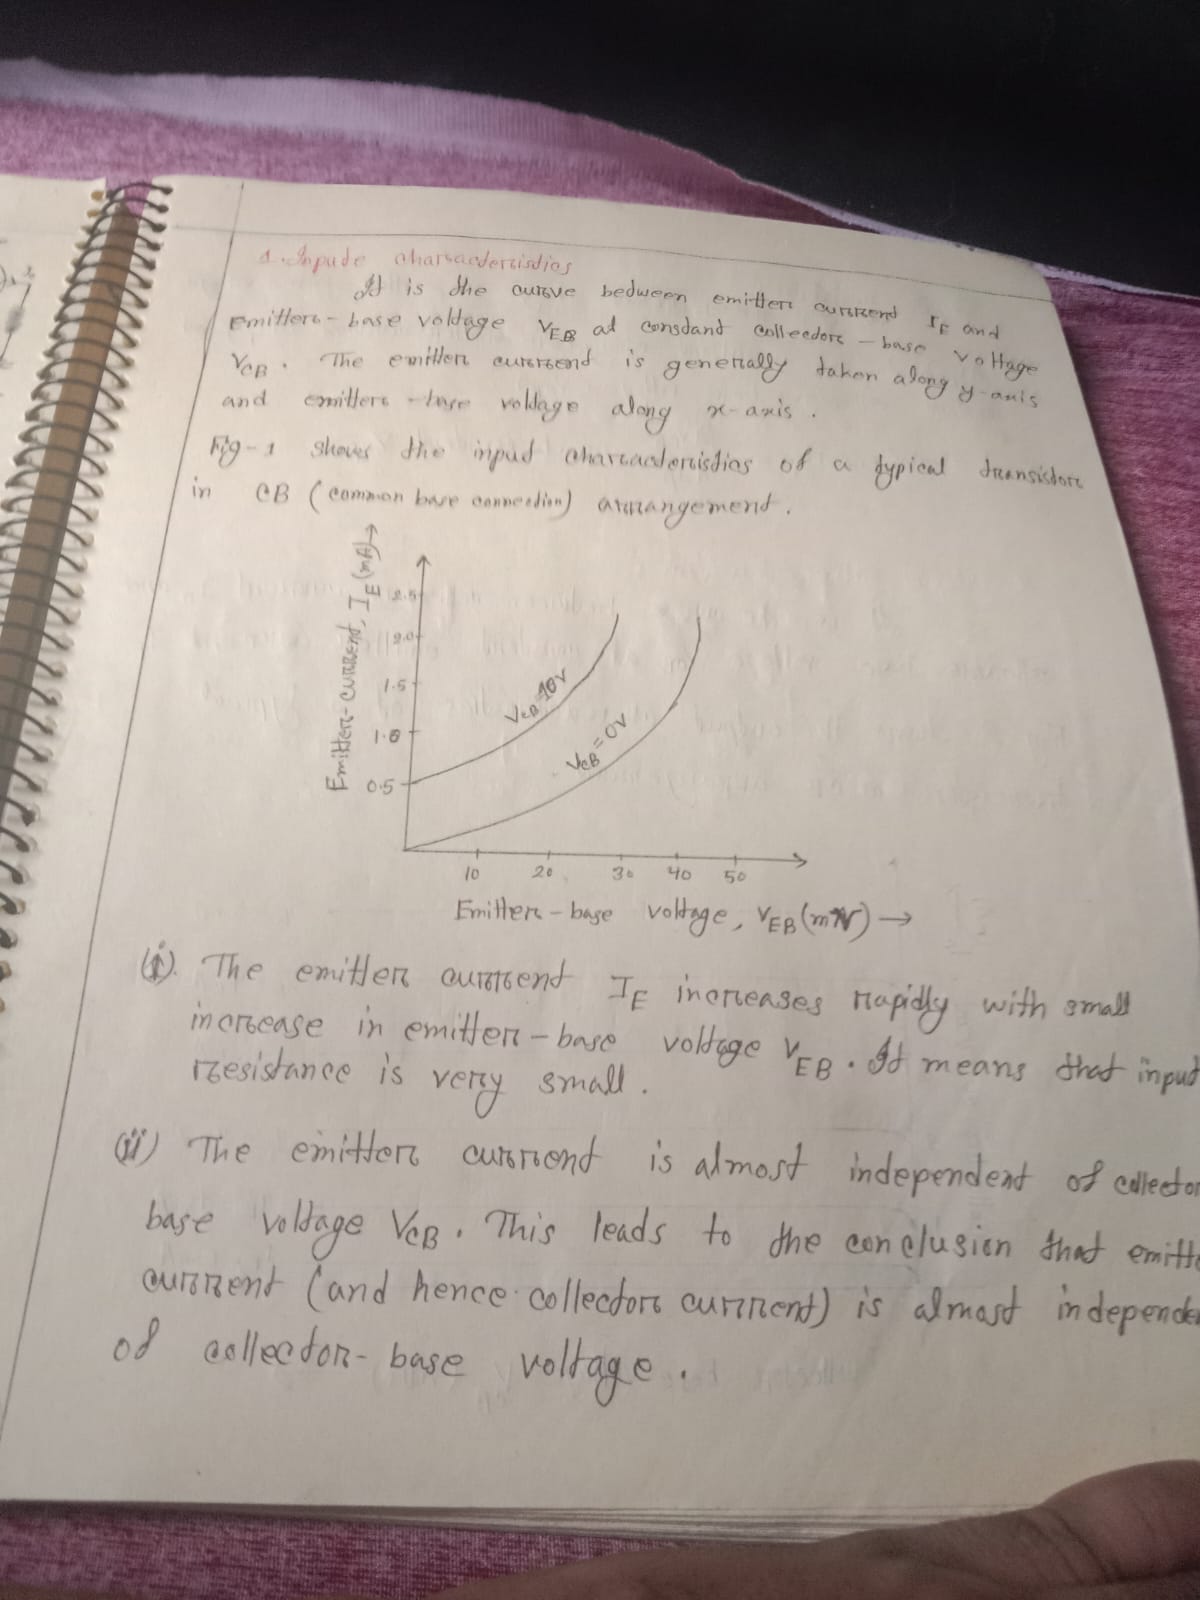 1. Inpude characterisdios
It is the curve bedween emitter currend IE and
Emitter-base voldage VEB at consdand colleedore-base voltage
VCB. The emitter currend is generally taken along y-axis
and emitter-base voldage along x-axis.
Fig-1 shows the inpud characdorisdios of a dypical dransistor
in CB (common base connection) arrangement.
Emitter-current, IE (mA) →
2.5
2.0
1.5
1.0
0.5
VCB = 10V
VCB = 0V
10 20 30 40 50
Emitter-base voltage, VEB (mV) →
(i). The emitter current IE increases rapidly with small
increase in emitter-base voltage VEB. It means that inpud
resistance is very small.
(ii) The emitter current is almost independent of collector
base voldage VCB. This leads to the conclusion that emitte
current (and hence collector current) is almost independen
of collector-base voltage.